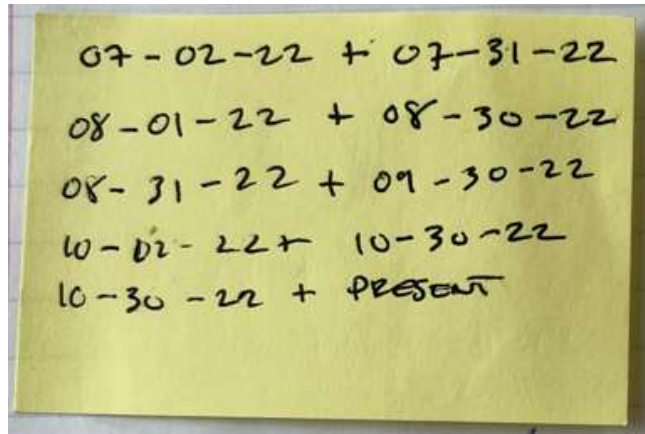 07-02-22 + 07-31-22
08-01-22 + 08-30-22
08-31-22 + 09-30-22
10-02-22 + 10-30-22
10-30-22 + PRESENT